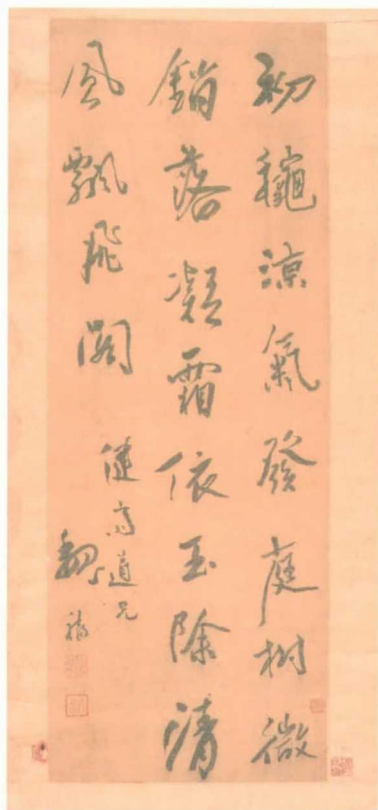 初龝涼氣發庭樹微
銷落凝霜依玉除清
風飄飛閣
健道兄